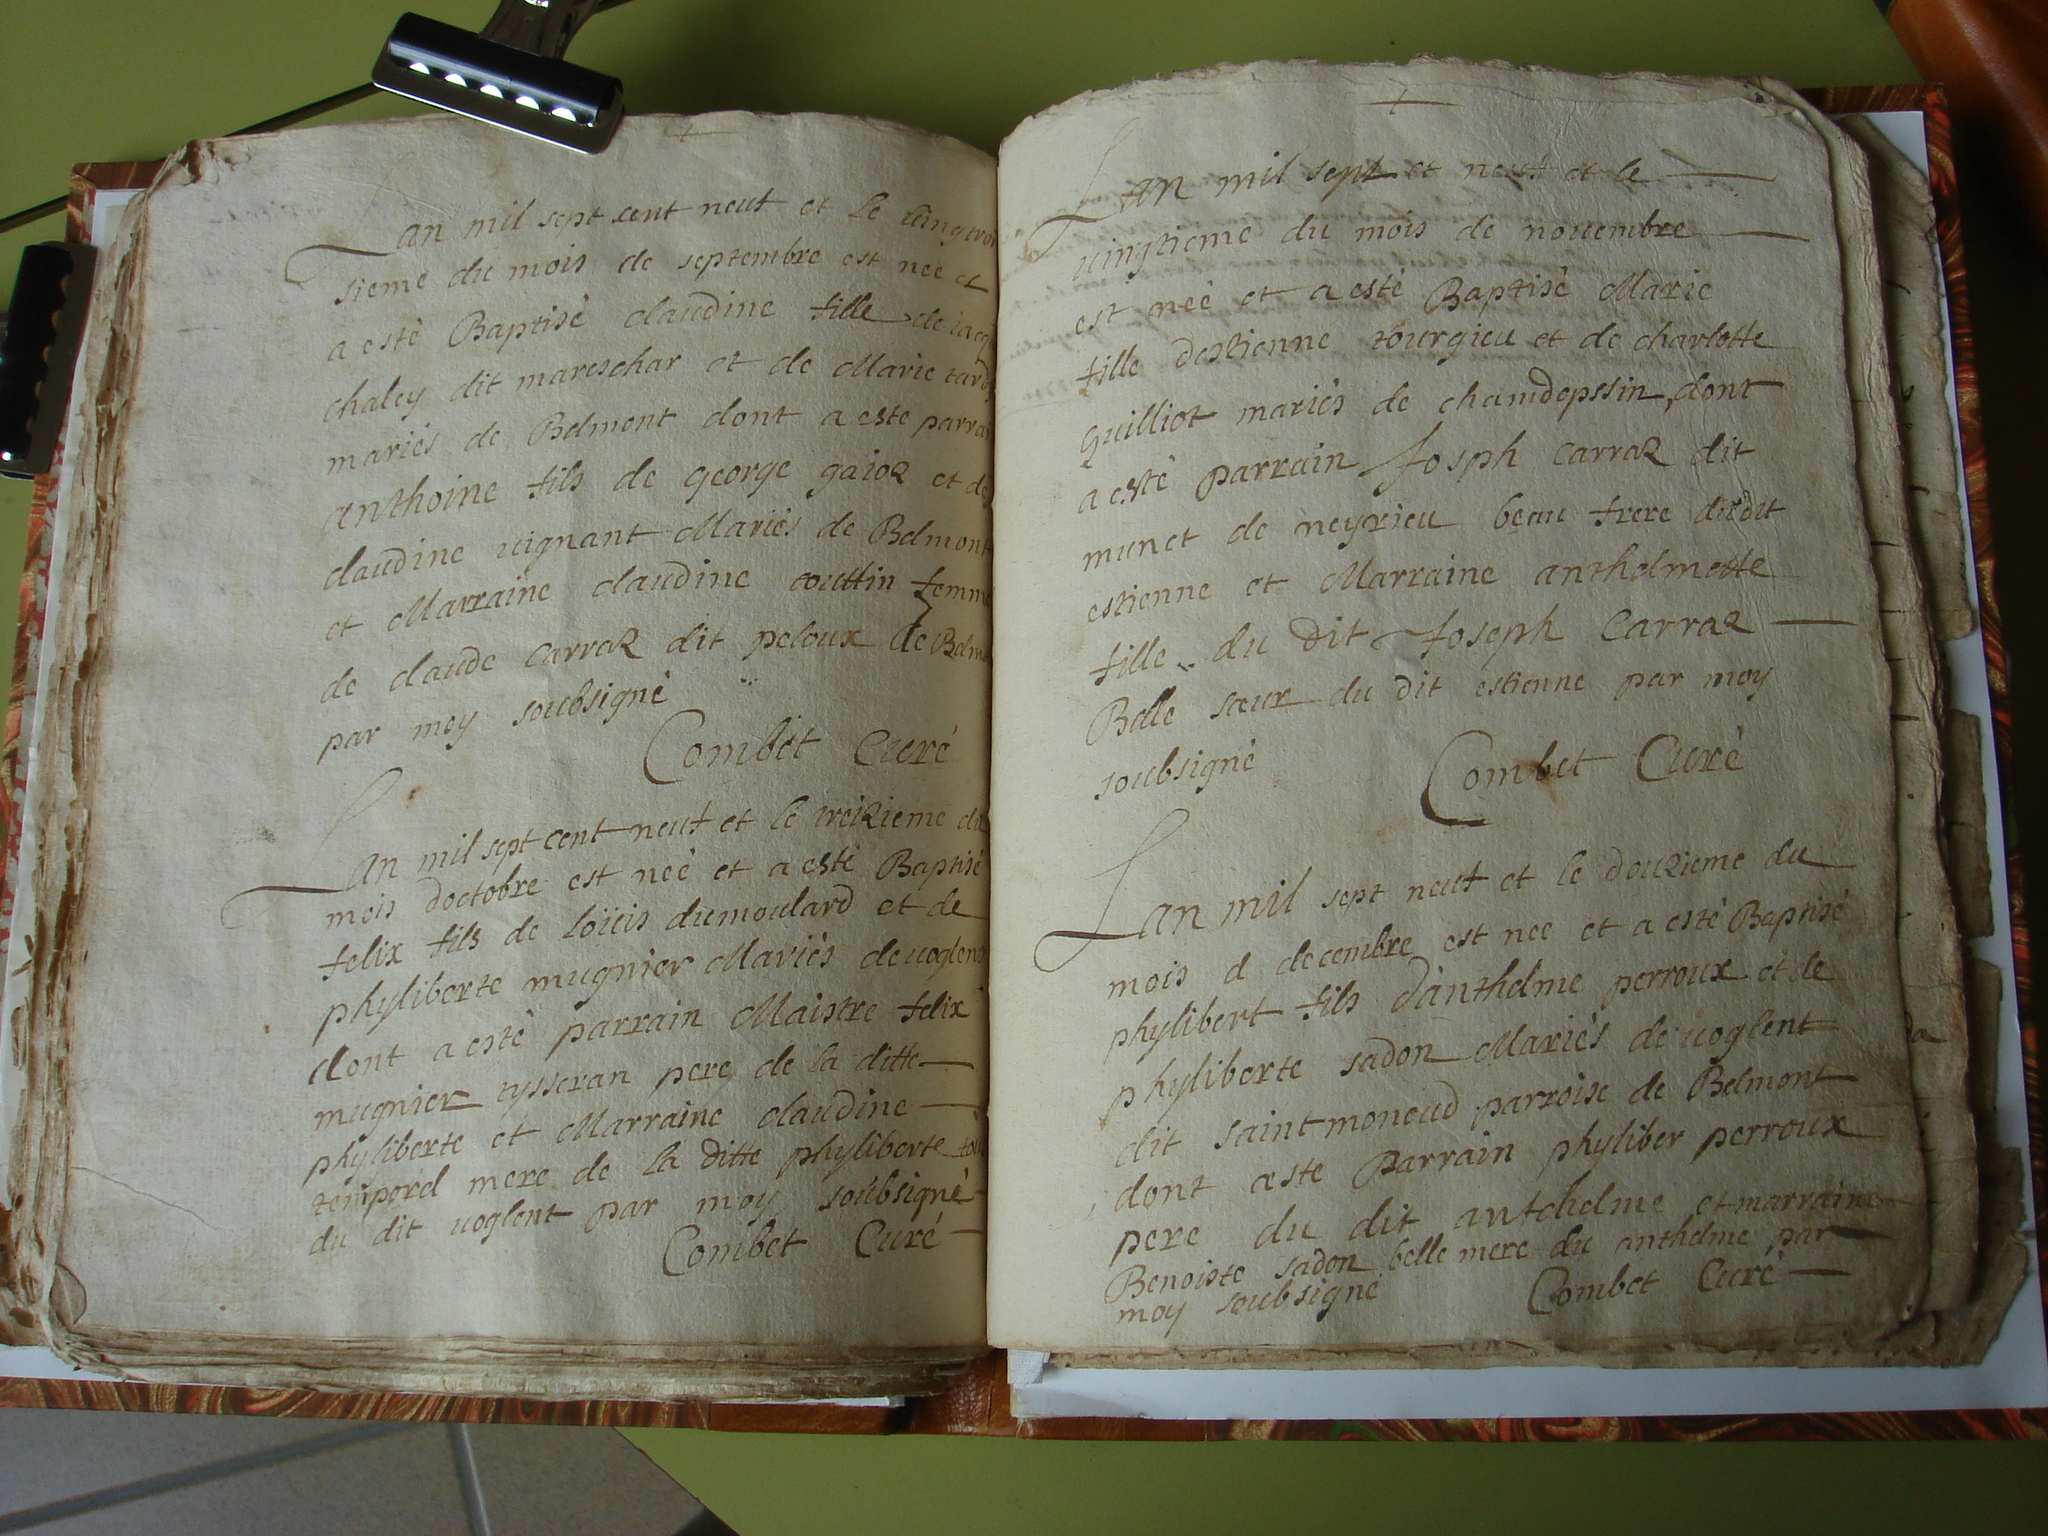 Lan mil sept cent neuf et le vingt troi
sieme du mois de septembre est neé et
a estè Baptisè claudine fille de iacq
chaley dit mareschar et de Marie tardy
mariés de Belmont dont a este parrai
anthoine fils de george gaioz et de
claudine vignant Mariés de Belmont
et Marraine claudine couttin femme
de claude carraz dit peloux de Belmo
par moy soubsignè
Combet Curé
Lan mil sept cent neuf et le treizieme du
mois doctobre est néé et a estè Baptisè
felix fils de loüis dumoulard et de
phyliberte mugnier Mariés de voglent
dont a estè parrain Maistre felix
mugnier tysseran pere de la ditte
phyliberte et Marraine claudine
temporel mere de la ditte phyliberte tous
du dit voglent par moy soubsigné
Combet Curé
Lan mil sept et neuf et le
vingtieme du mois de novembre
est néé et a estè Baptisè Marie
fille destienne tourgieu et de charlotte
guilliot mariés de chamdepssin dont
a estè parrain Josph carraz dit
munet de neyrieu beau frere dudit
estienne et Marraine anthelmette
fille du dit Joseph Carraz
Belle sœur du dit estienne par moy
soubsigné
Combet Curè
Lan mil sept neuf et le douzieme du
mois d decembre est neé et a estè Baptisé
phylibert fils d'anthelme perroux et de
phyliberte sadon Mariés de voglent
dit saint moneud parroise de Belmont
dont aeste Parrain phyliber perroux
pere du dit antehelme et marraine
Benoiste sadon belle mere du anthelme par
moy soubsigné
Combet Curé